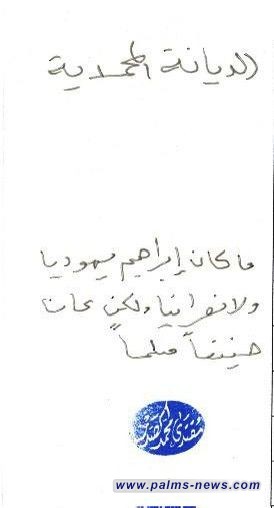 الديانة المحمدية
ما كان إبراهيم يهوديا
ولا نصرانيا ولكن كان
حنيفاً مسلماً
مقتدى محمد الصدر
www.palms-news.com